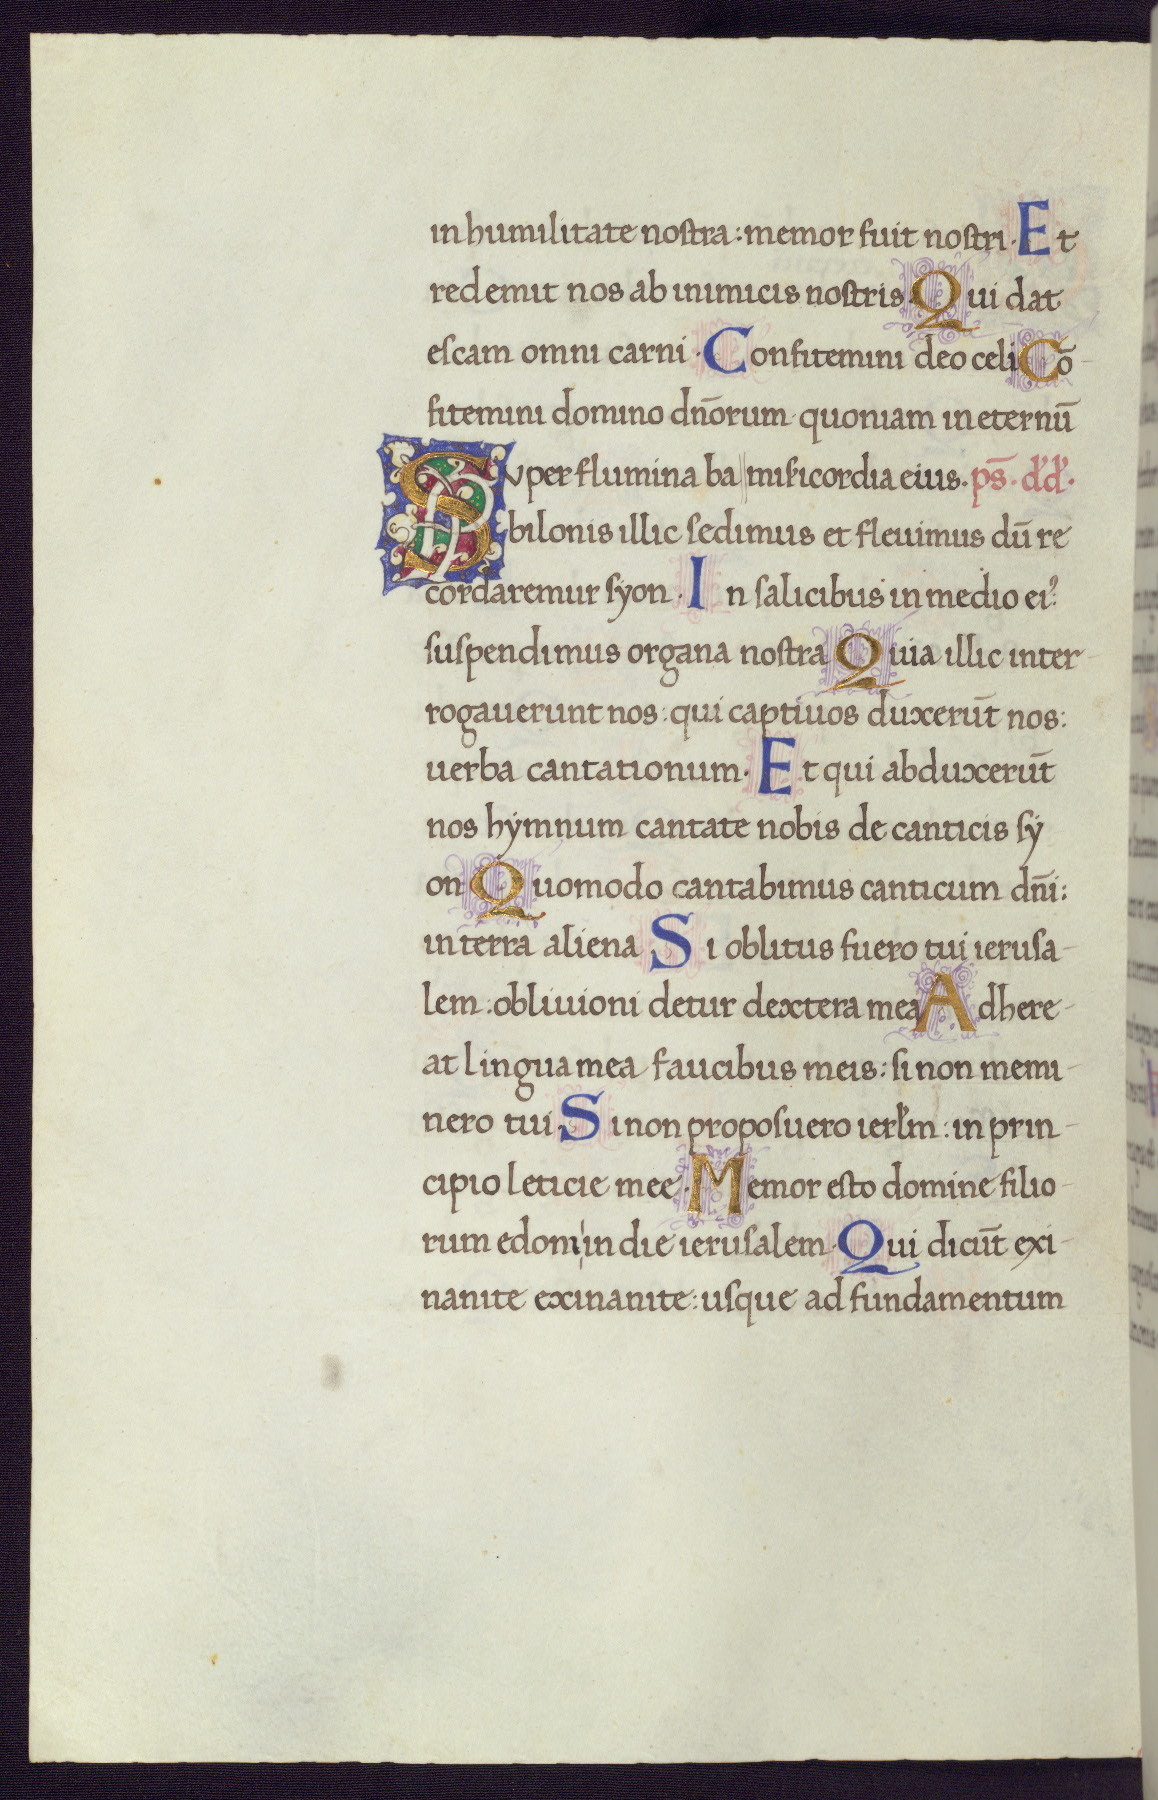 in humilitate nostra: memor fuit nostri. Et
redemit nos ab inimicis nostris. Qui dat
escam omni carni. Confitemini deo celi Cō
fitemini domino dn̄orum quoniam in eternū
Super flumina ba misericordia eius. ps̄. dd.
bilonis illic sedimus et fleuimus dū re
cordaremur syon. In salicibus in medio eiꝰ:
suspendimus organa nostra Quia illic inter-
rogauerunt nos: qui captiuos duxerūt nos:
uerba cantationum. Et qui abduxerūt
nos hẏmnum cantate nobis de canticis sẏ
on Quomodo cantabimus canticum dn̄i:
in terra aliena Si oblitus fuero tui ierusa-
lem: obliuioni detur dextera mea Adhere-
at lingua mea faucibus meis: si non memi-
nero tui. Si non proposuero ierłm: in prin-
cipio leticie mee. Memor esto domine filio-
rum edom in die ierusalem. Qui dicūt exi-
nanite exinanite: usque ad fundamentum